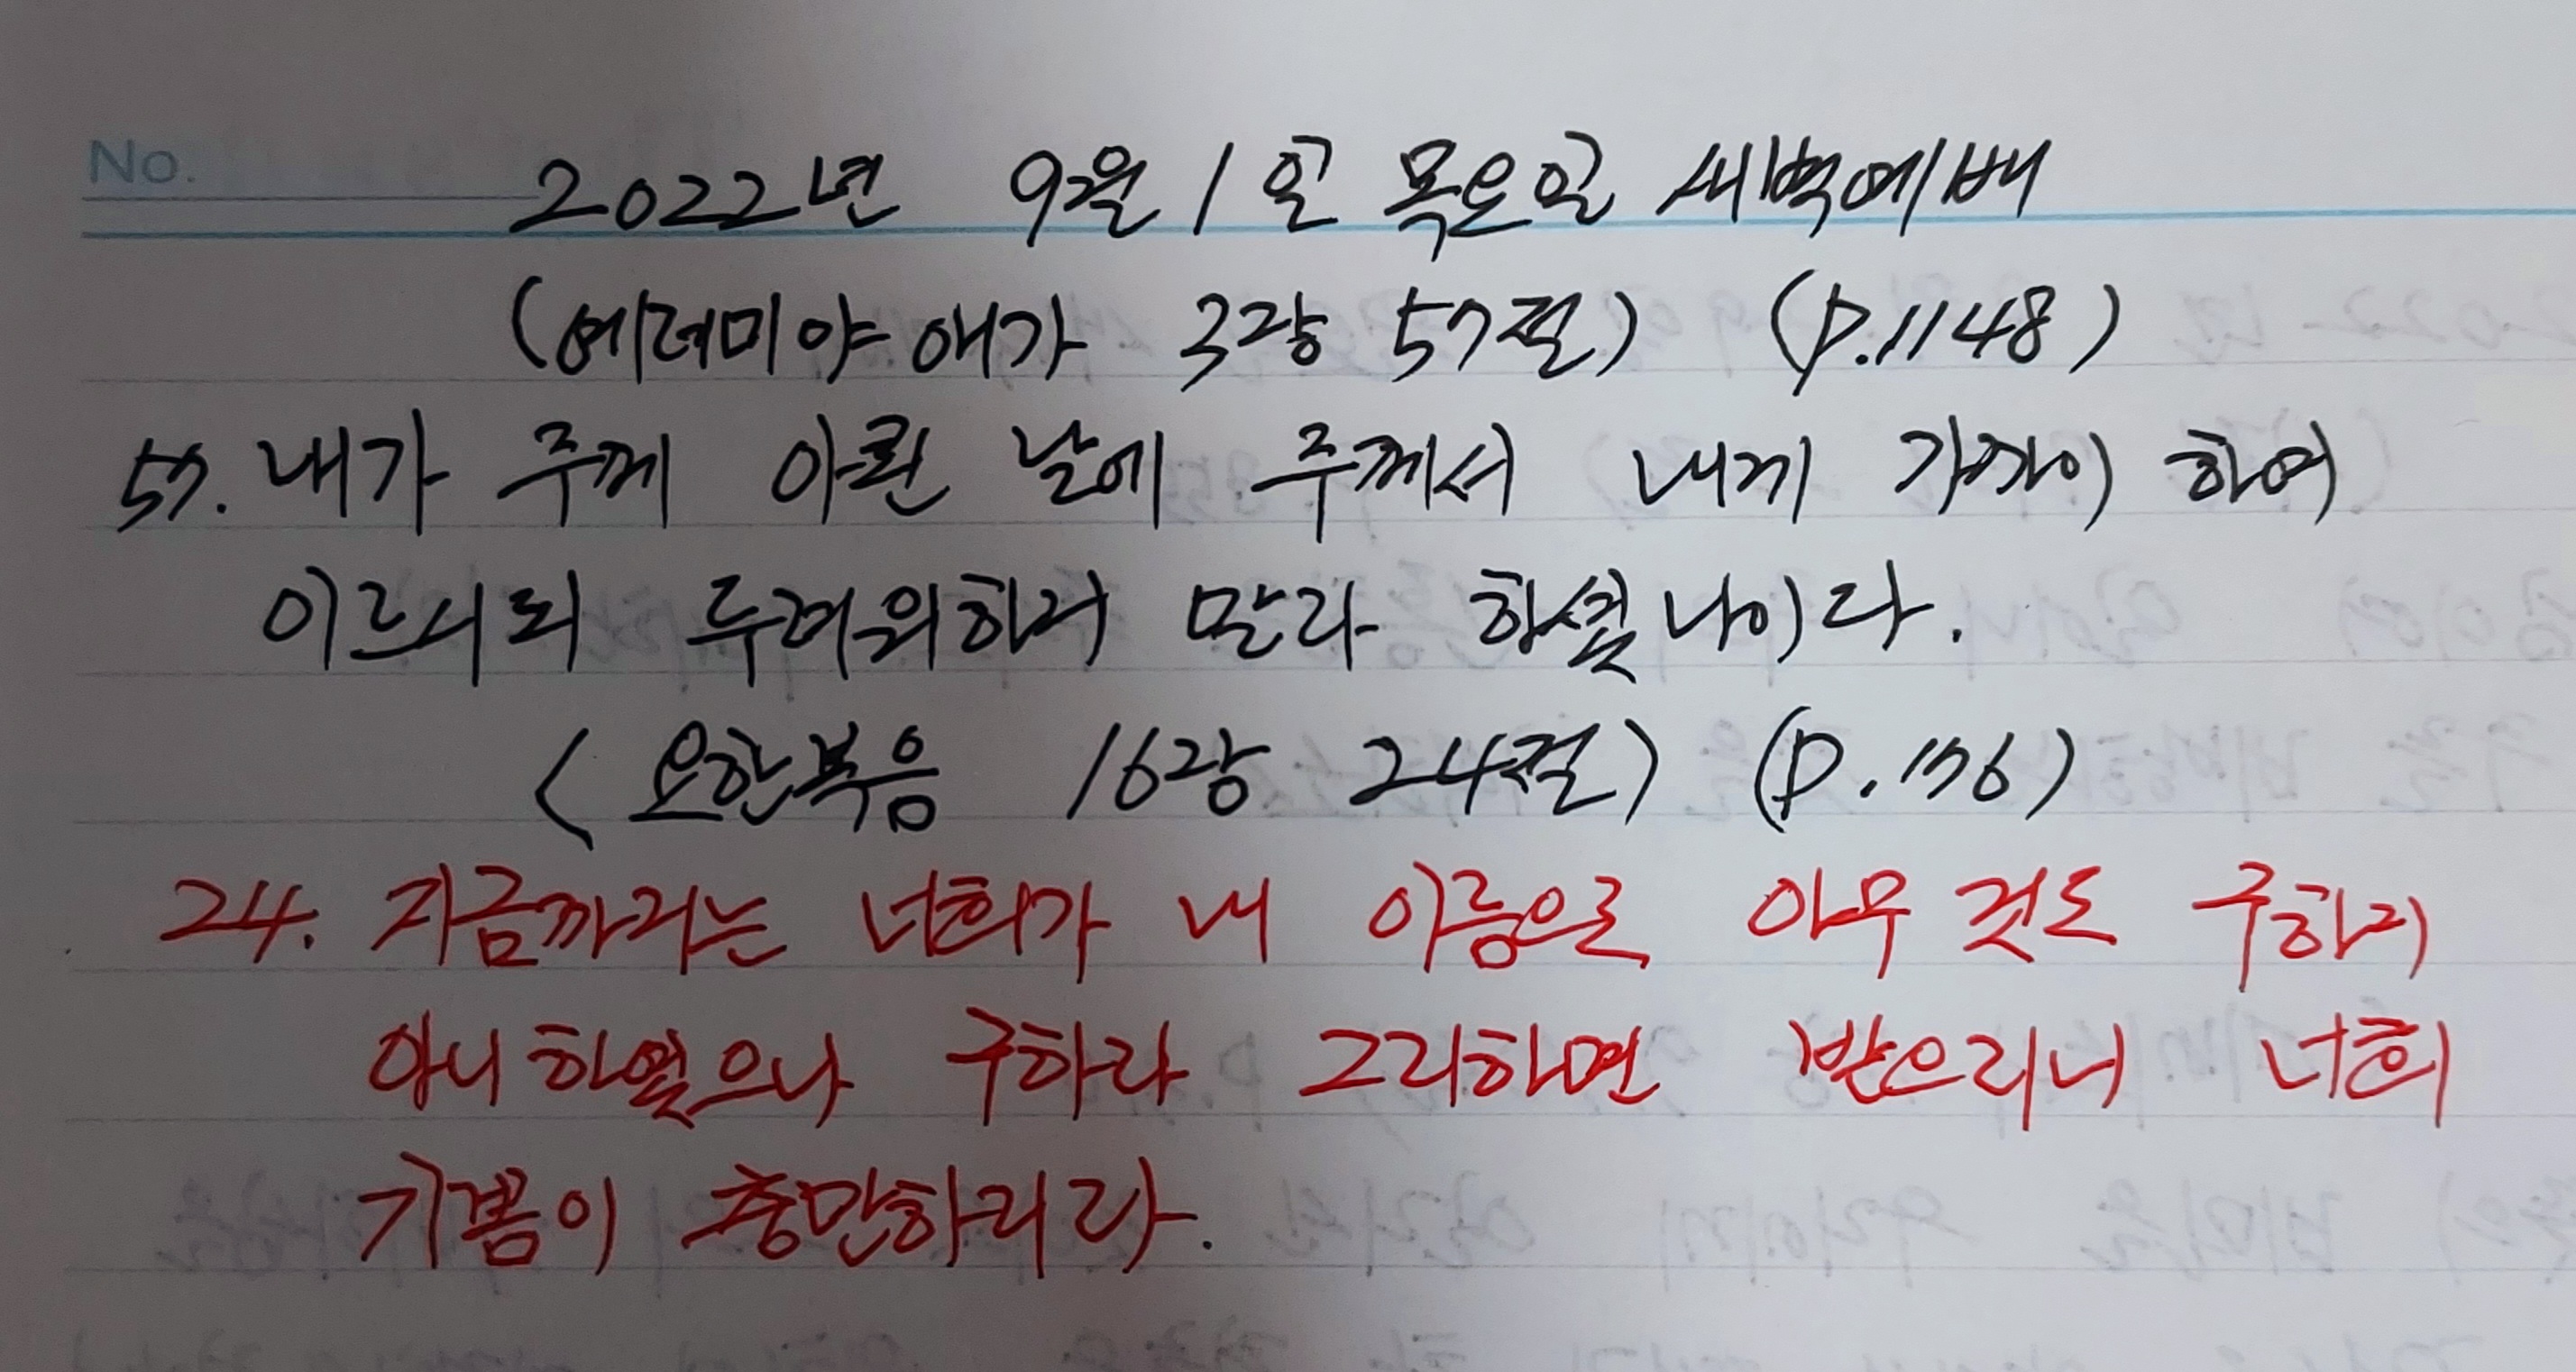 No.
2022년 9월 1일 목요일 새벽예배
(예레미야애가 3장 57절) (P.1148)
57. 내가 주께 아뢴 날에 주께서 내게 가까이 하여
이르시되 두려워하지 말라 하셨나이다.
(요한복음 16장 24절) (P.176)
24. 지금까지는 너희가 내 이름으로 아무 것도 구하지
아니하였으나 구하라 그리하면 받으리니 너희
기쁨이 충만하리라.